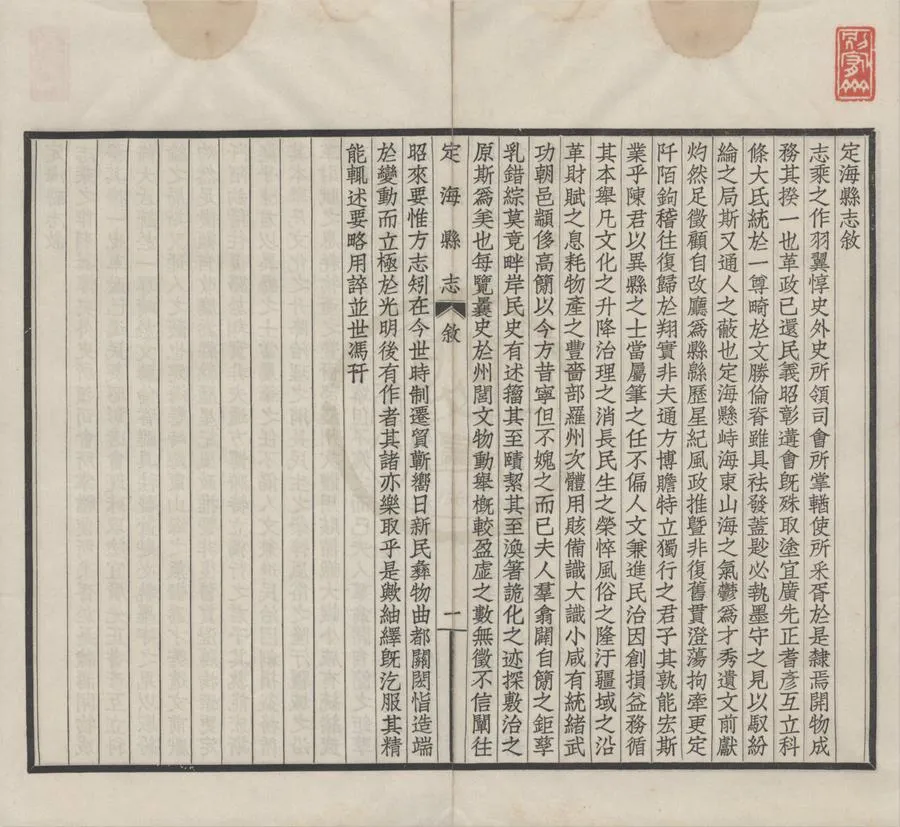 定海縣志敘
志乘之作羽翼惇史外史所領司會所掌輶使所采胥於是隸焉開物成
務其揆一也革政已還民義昭彰遘會旣殊取塗宜廣先正耆彥互立科
條大氐統於一尊畸於文勝倫脊雖具袪發蓋尟必執墨守之見以馭紛
綸之局斯又通人之蔽也定海懸峙海東山海之氣鬱爲才秀遺文前獻
灼然足徵顧自改廳爲縣縣歷星紀風政推暨非復舊貫澄蕩拘牽更定
阡陌鉤稽往復歸於翔實非夫通方博贍特立獨行之君子其孰能宏斯
業乎陳君以異縣之士當屬筆之任不偏人文兼進民治因創損益務循
其本舉凡文化之升降治理之消長民生之榮悴風俗之隆汙疆域之沿
革財賦之息耗物產之豐嗇部羅州次體用賅備識大識小咸有統緒武
功朝邑顓侈高簡以今方昔寧但不媿之而已夫人羣翕闢自簡之鉅孳
乳錯綜莫竟畔岸民史有述籀其至賾絜其至渙箸詭化之迹探敷治之
原斯爲美也每覽曩史於州閭文物動舉槪較盈虛之數無徵不信闡往
定海縣志 敘 一
昭來要惟方志矧在今世時制遷貿蘄嚮日新民彝物曲都關閎恉造端
於變動而立極於光明後有作者其諸亦樂取乎是歟紬繹旣汔服其精
能輒述要略用誶並世馮幵